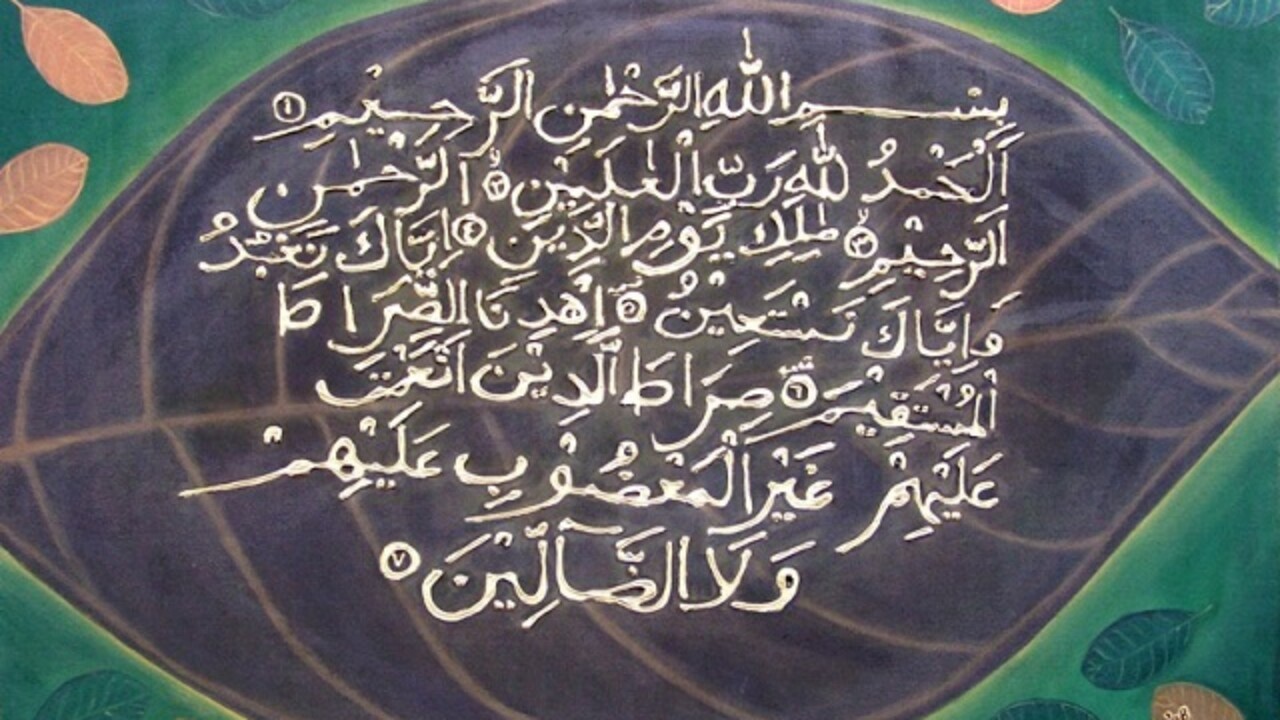 بِسْمِ اللهِ الرَّحْمٰنِ الرَّحِيْمِ ١
اَلْحَمْدُ لِلّٰهِ رَبِّ الْعٰلَمِيْنَ ٢ الرَّحْمٰنِ
الرَّحِيْمِ ٣ مٰلِكِ يَوْمِ الدِّيْنِ ٤ اِيَّاكَ نَعْبُدُ
وَاِيَّاكَ نَسْتَعِيْنُ ٥ اِهْدِنَا الصِّرَاطَ
الْمُسْتَقِيْمَ ٦ صِرَاطَ الَّذِيْنَ اَنْعَمْتَ
عَلَيْهِمْ غَيْرِ الْمَغْضُوْبِ عَلَيْهِمْ
وَلَا الضَّآلِّيْنَ ٧